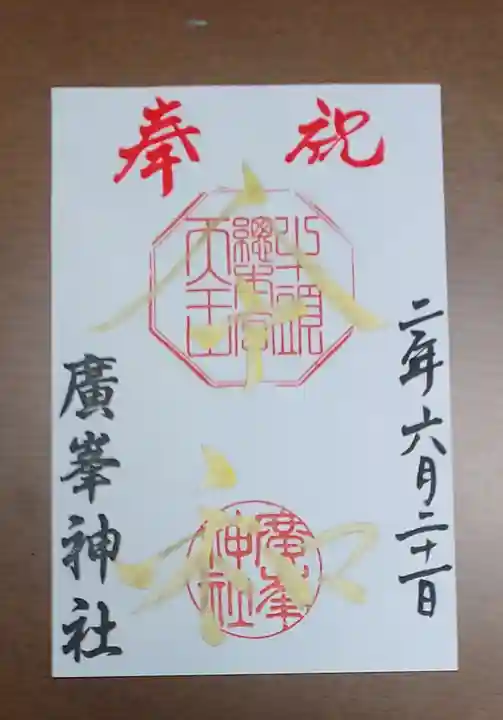 祝 奉
令和
二年六月二十一日
廣峯神社
廣峯
神社